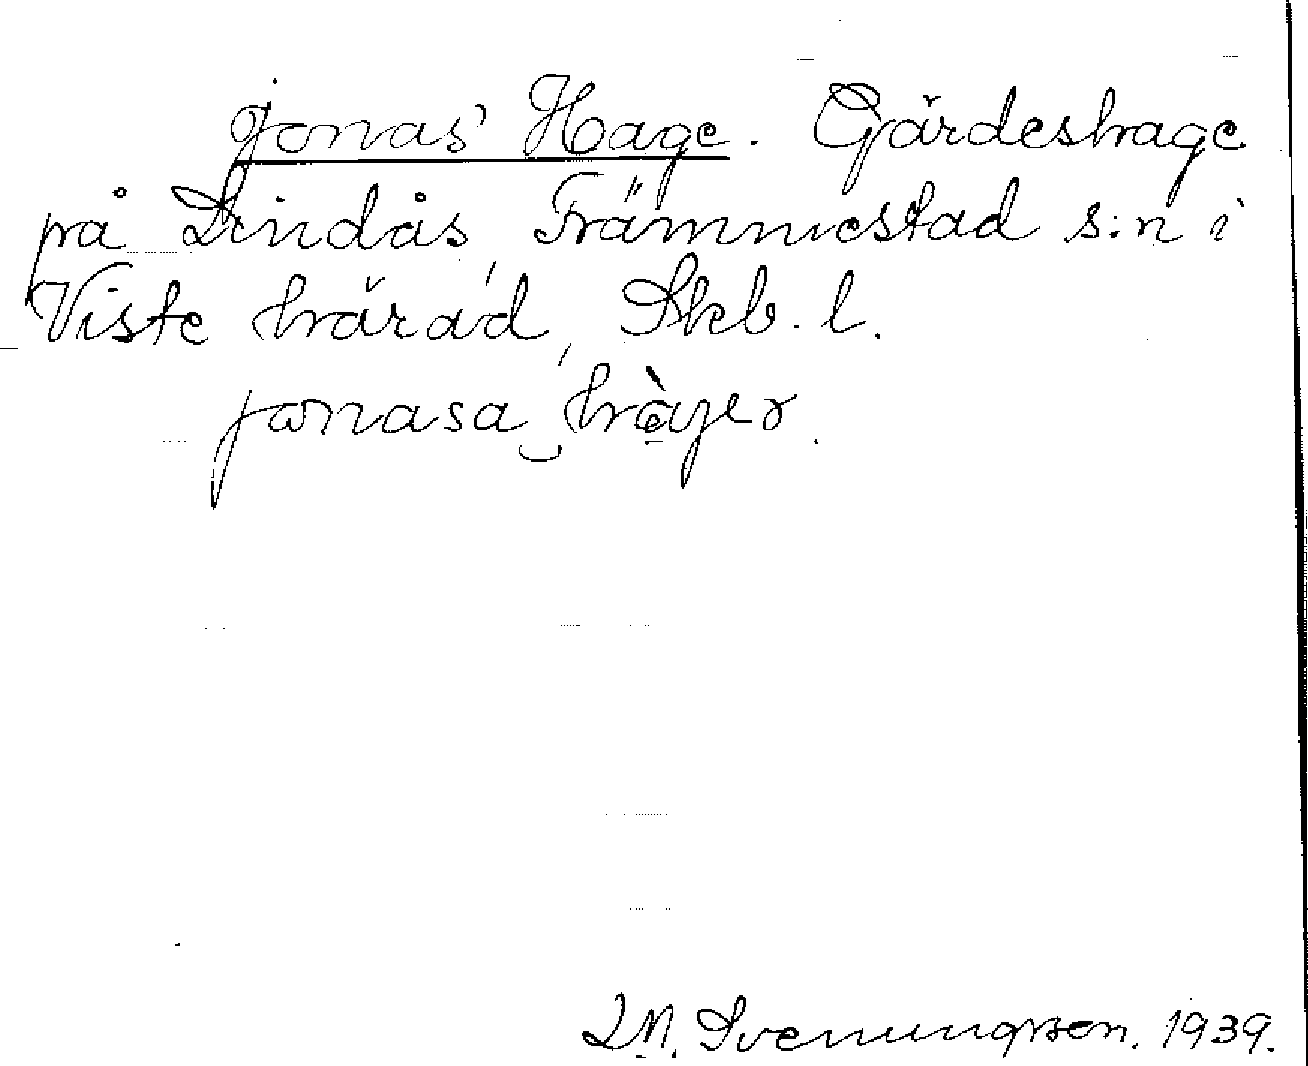 Jonas' Hage. Gärdeshage
på Lindås, Främmestad s:n i
Viste härad, Skb. l.
jonasa‿hàɡer.
I.M. Svenungsson. 1939.